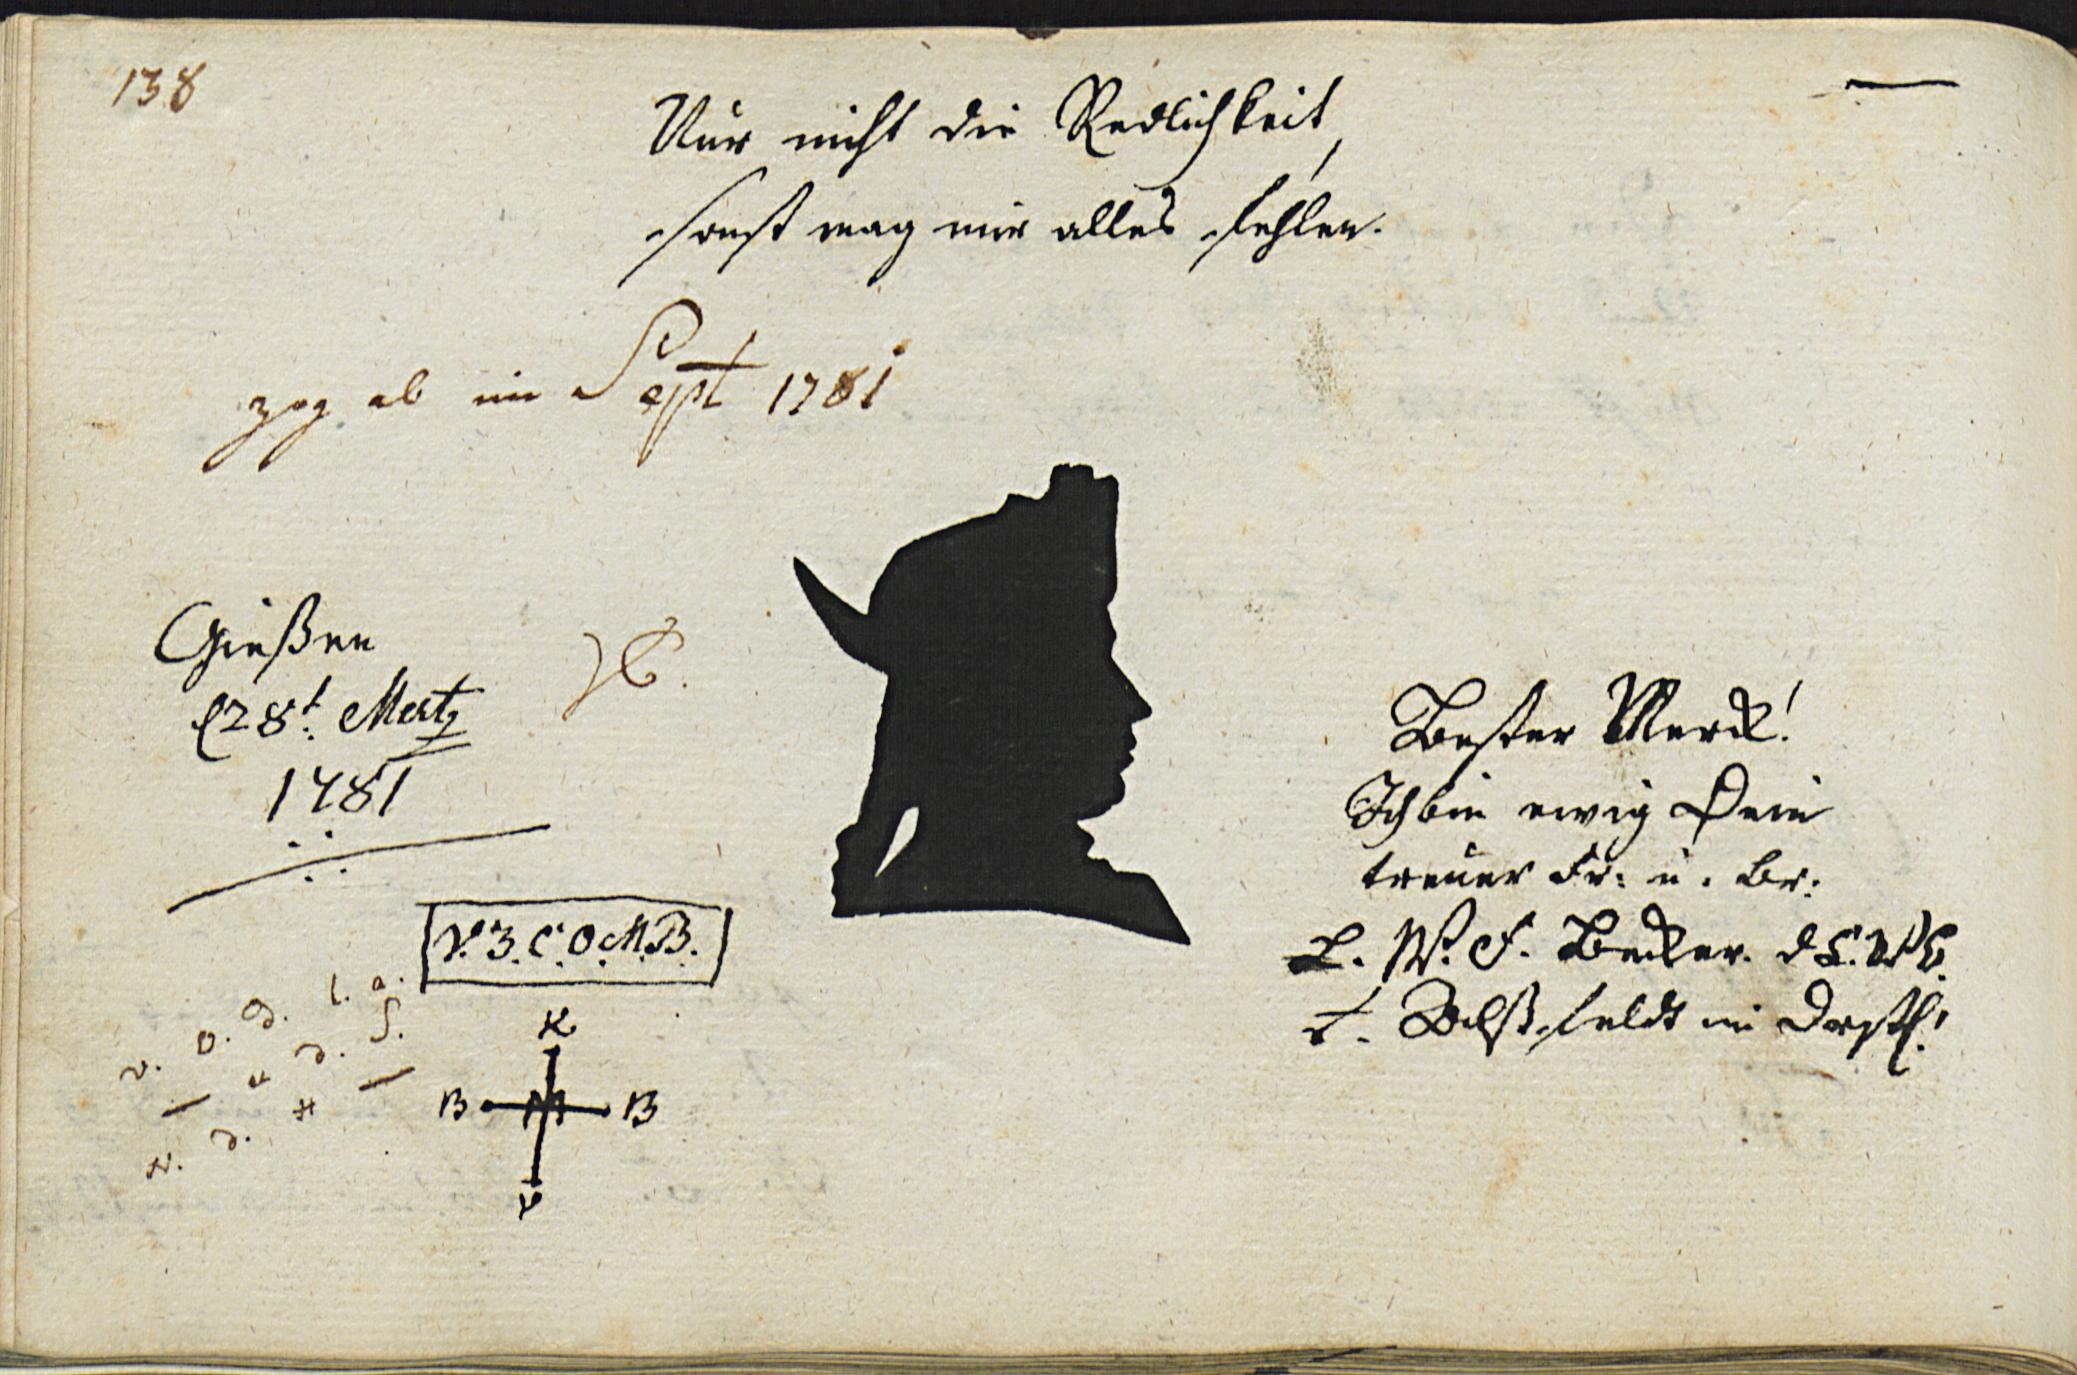 138
Nur nicht die Redlichkeit,
sonst mag mir alles fehlen.
zog ab im Sept 1781
Gießen
28t. Mertz
1781
Bester Merck!
Ich bin ewig Dein
treuer Fr: u. Br:
L. W. F. Becker. d.
V. 3. C. O. M. B.
v. O. d. l. a.
d. S.
v. d. #
K
B M B
V
feldt im